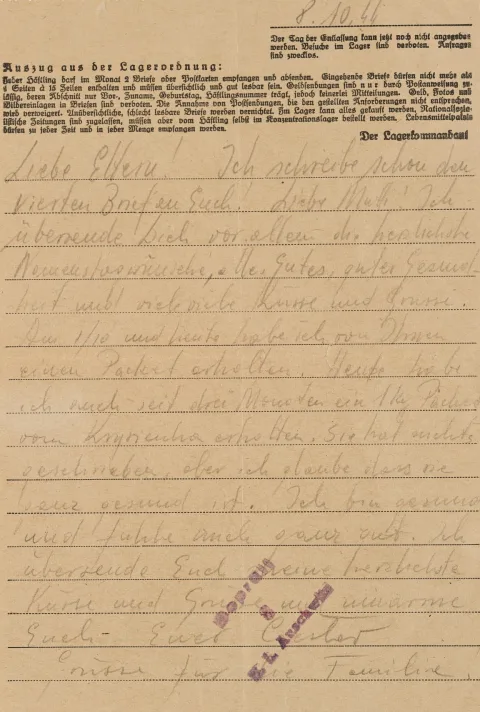 8. 10. 44
Der Tag der Entlassung kann jetzt noch nicht angegeben
werden. Besuche im Lager sind verboten. Anfragen
sind zwecklos.
Auszug aus der Lagerordnung:
Jeder Häftling darf im Monat 2 Briefe oder Postkarten empfangen und absenden. Eingehende Briefe dürfen nicht mehr als
4 Seiten à 15 Zeilen enthalten und müssen übersichtlich und gut lesbar sein. Geldsendungen sind nur durch Postanweisung zu-
lässig, deren Abschnitt nur Vor-, Zuname, Geburtstag, Häftlingsnummer trägt, jedoch keinerlei Mitteilungen. Geld, Fotos und
Bildereinlagen in Briefen sind verboten. Die Annahme von Postsendungen, die den gestellten Anforderungen nicht entsprechen,
wird verweigert. Unübersichtliche, schlecht lesbare Briefe werden vernichtet. Im Lager kann alles gekauft werden. Nationalsozia-
listische Zeitungen sind zugelassen, müssen aber vom Häftling selbst im Konzentrationslager bestellt werden. Lebensmittelpakete
dürfen zu jeder Zeit und in jeder Menge empfangen werden.
Der Lagerkommandant
Liebe Eltern. Ich schreibe schon den
vierten Brief an Euch! Liebe Mutti! Ich
übersende Dich vor allem die herzlichste
Namenstagwünsche, alles Gutes, guter Gesund-
heit und viele viele Küsse und Grüsse.
Am 1/10 und heute habe ich von Ihnen
einen Packet erhalten. Heute habe
ich auch seit drei Monaten ein Packet
vom erhalten. Sie hat nichts
geschrieben, aber ich glaube dass sie
ganz gesund ist. Ich bin gesund
und fühle auch ganz gut. Ich
übersende Euch meine herzlichste
Küsse und Grüsse und umarme
Euch. Euer
Grüsse für die Familie.
Geprüft
K. L. Auschwitz